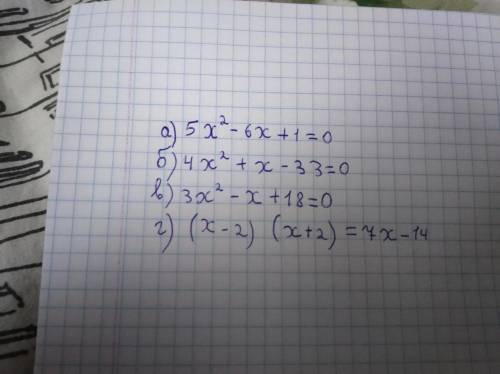 а) 5x² - 6x + 1 = 0
б) 4x² + x - 33 = 0
в) 3x² - x + 18 = 0
г) (x - 2) (x + 2) = 7x - 14